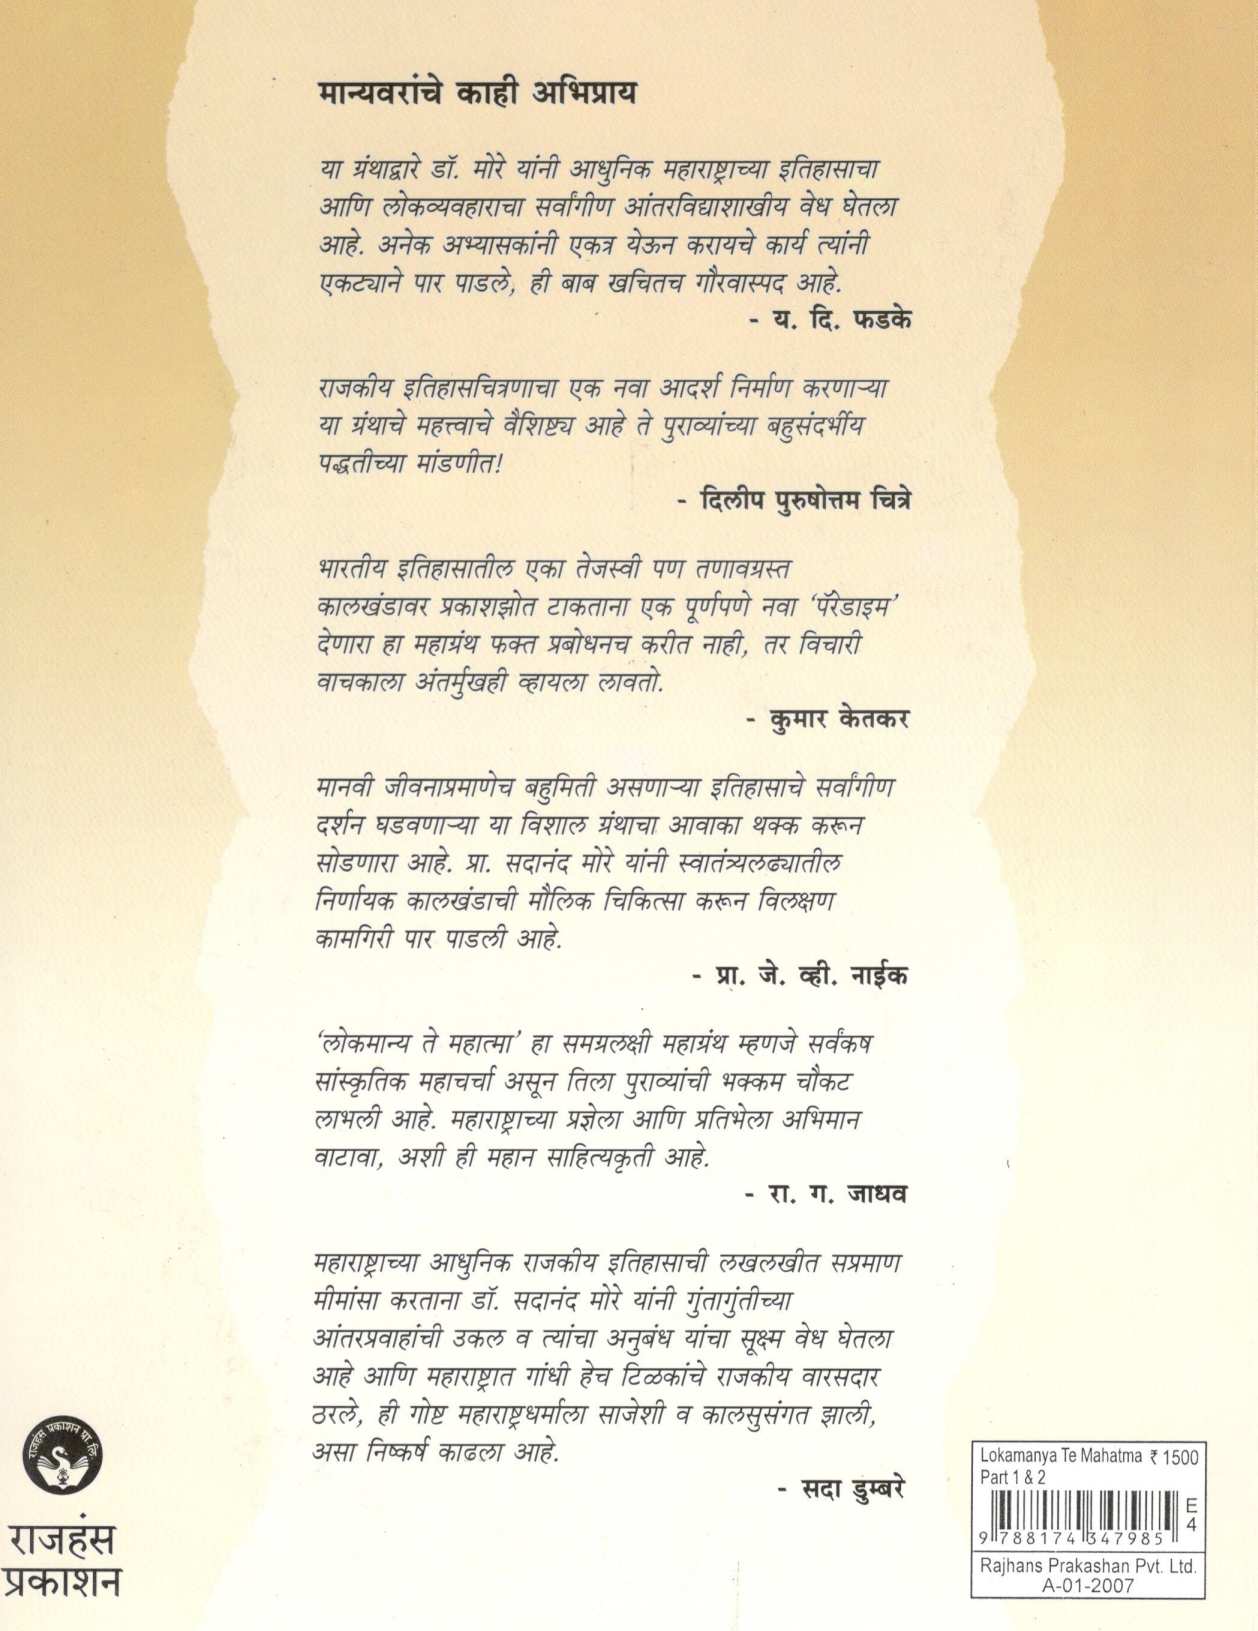 मान्यवरांचे काही अभिप्राय
या ग्रंथाद्वारे डॉ. मोरे यांनी आधुनिक महाराष्ट्राच्या इतिहासाचा
आणि लोकव्यवहाराचा सर्वांगीण आंतरविद्याशाखीय वेध घेतला
आहे. अनेक अभ्यासकांनी एकत्र येऊन करायचे कार्य त्यांनी
एकट्याने पार पाडले, ही बाब खचितच गौरवास्पद आहे.
- य. दि. फडके
राजकीय इतिहासचित्रणाचा एक नवा आदर्श निर्माण करणाऱ्या
या ग्रंथाचे महत्त्वाचे वैशिष्ट्य आहे ते पुराव्यांच्या बहुसंदर्भीय
पद्धतीच्या मांडणीत!
- दिलीप पुरुषोत्तम चित्रे
भारतीय इतिहासातील एका तेजस्वी पण तणावग्रस्त
कालखंडावर प्रकाशझोत टाकताना एक पूर्णपणे नवा ‘पॅरेडाइम’
देणारा हा महाग्रंथ फक्त प्रबोधनच करीत नाही, तर विचारी
वाचकाला अंतर्मुखही व्हायला लावतो.
- कुमार केतकर
मानवी जीवनाप्रमाणेच बहुमिती असणाऱ्या इतिहासाचे सर्वांगीण
दर्शन घडवणाऱ्या या विशाल ग्रंथाचा आवाका थक्क करून
सोडणारा आहे. प्रा. सदानंद मोरे यांनी स्वातंत्र्यलढ्यातील
निर्णायक कालखंडाची मौलिक चिकित्सा करून विलक्षण
कामगिरी पार पाडली आहे.
- प्रा. जे. व्ही. नाईक
‘लोकमान्य ते महात्मा’ हा समग्रलक्षी महाग्रंथ म्हणजे सर्वंकष
सांस्कृतिक महाचर्चा असून तिला पुराव्यांची भक्कम चौकट
लाभली आहे. महाराष्ट्राच्या प्रज्ञेला आणि प्रतिभेला अभिमान
वाटावा, अशी ही महान साहित्यकृती आहे.
- रा. ग. जाधव
महाराष्ट्राच्या आधुनिक राजकीय इतिहासाची लखलखीत सप्रमाण
मीमांसा करताना डॉ. सदानंद मोरे यांनी गुंतागुंतीच्या
आंतरप्रवाहांची उकल व त्यांचा अनुबंध यांचा सूक्ष्म वेध घेतला
आहे आणि महाराष्ट्रात गांधी हेच टिळकांचे राजकीय वारसदार
ठरले, ही गोष्ट महाराष्ट्रधर्माला साजेशी व कालसुसंगत झाली,
असा निष्कर्ष काढला आहे.
- सदा डुम्बरे
राजहंस प्रकाशन प्रा. लि.
राजहंस
प्रकाशन
Lokamanya Te Mahatma ₹ 1500
Part 1 & 2
E4
9 788174 347985
Rajhans Prakashan Pvt. Ltd.
A-01-2007